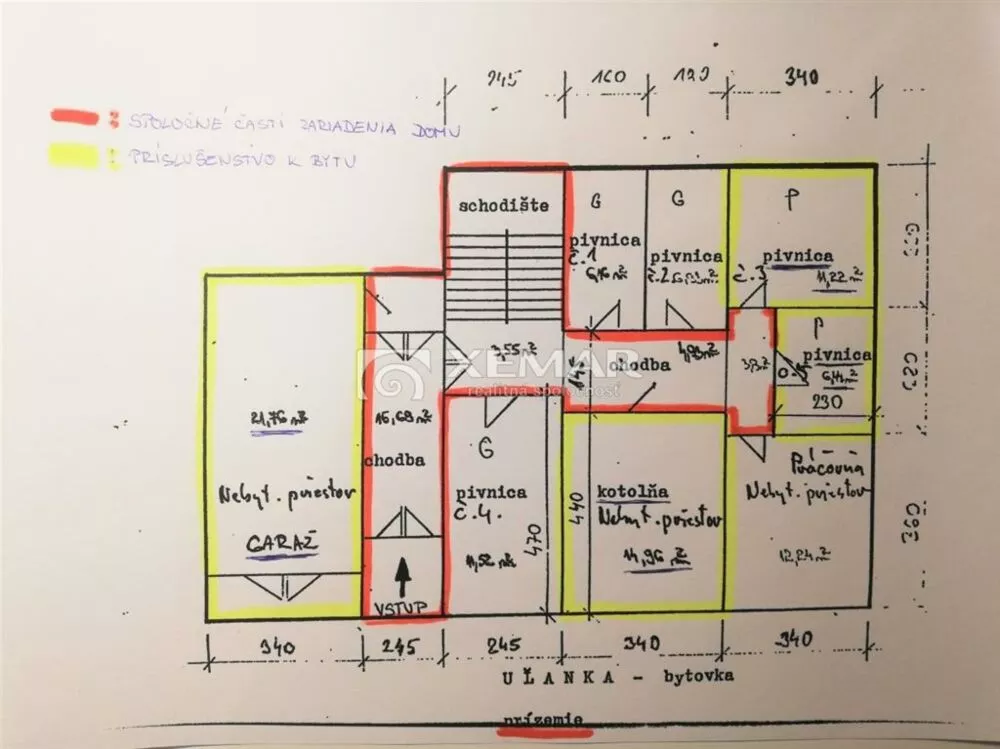 245 160 120 340
: SPOLOČNÉ ČASTI ZARIADENIA DOMU
: PRÍSLUŠENSTVO K BYTU
schodište
G
pivnica
č.1
6,16 m²
G
pivnica
č.2
P
č.3 pivnica
11,22 m²
3,55 m²
chodba
4,93 m²
P
pivnica
č.5
230
XEMAR
realitná spoločnosť
21,76 m²
Nebyt. priestor
GARAŽ
16,69 m²
chodba
VSTUP
G
pivnica
č.4.
11,52 m²
470
145
440
kotolňa
Nebyt. priestor
14,96 m²
Pračovňa
Nebyt. priestor
12,24 m²
360
340 245 245 340 340
UĽANKA - bytovka
prízemie